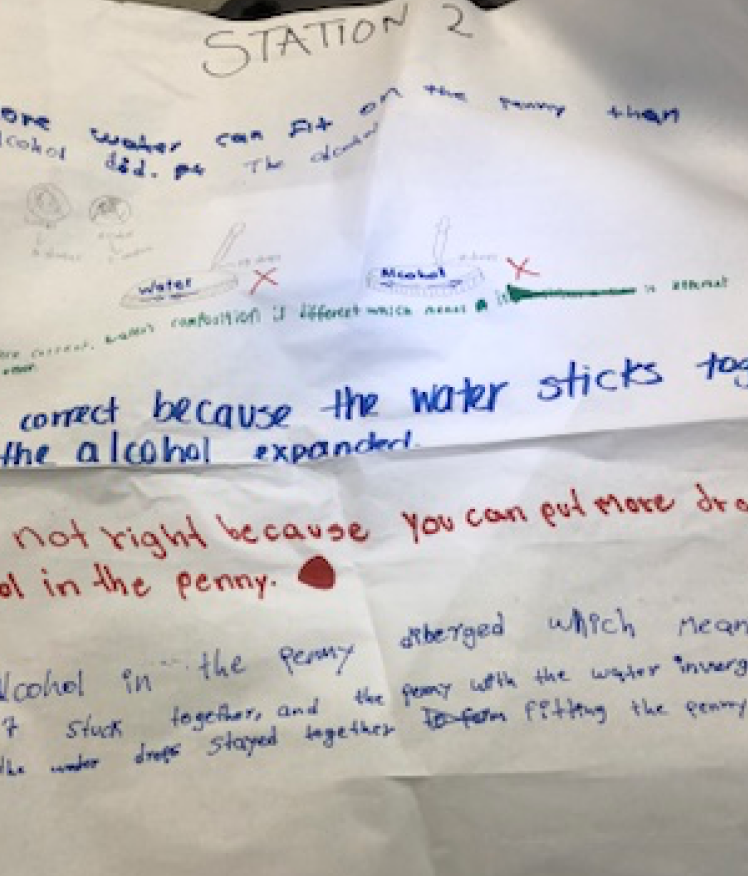 STATION 2
ore water can fit on the penny than
lcohol did. The alcohol
Water
Alcohol
composition is different which means is
correct because the water sticks tog
the alcohol expanded.
not right because you can put more dro
ol in the penny.
lcohol in the penny diberged which mean
t stuck together, and the penny with the water inverg
the water drops stayed together fitting the penny